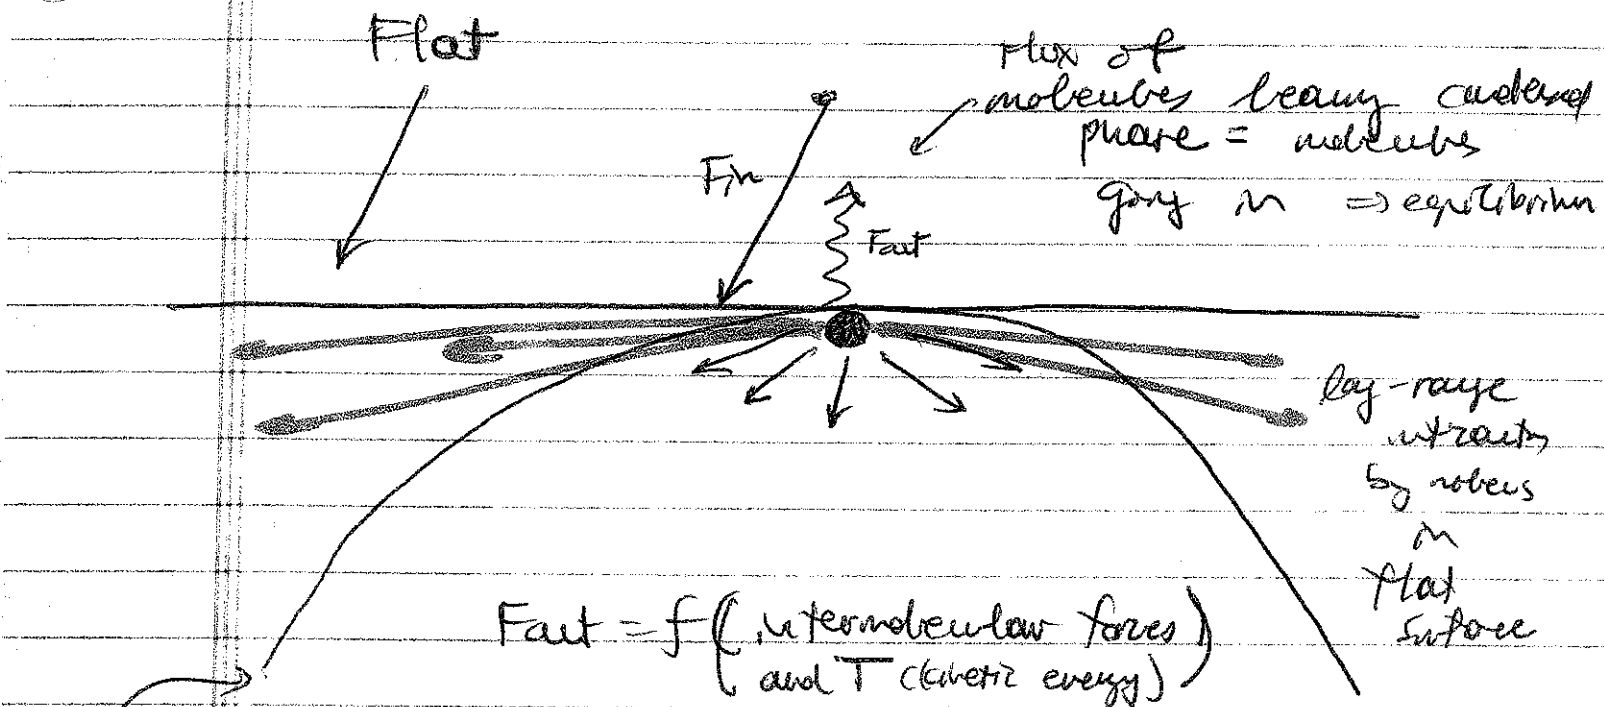 Flat
Flux of
molecules leaving condensed
phase = molecules
going in => equilibrium
Fin
Fout
long-range
interactions
by molecules
in
flat
surface
Fout = f(intermolecular forces)
and T (kinetic energy)